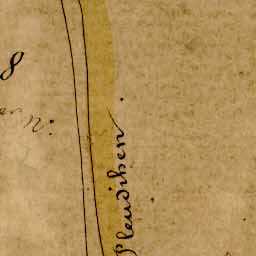 8
n:
Pleudihen